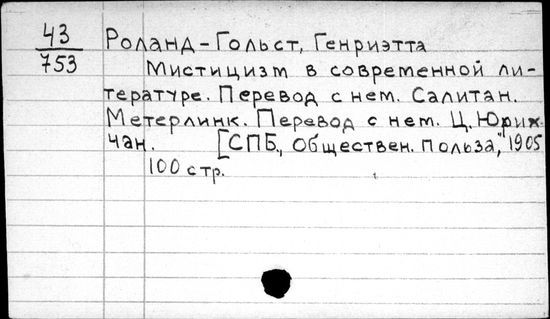 43 Роланд-Гольст, Генриэтта
753 Мистицизм в современной ли-
тературе. Перевод с нем. Салитан.
Метерлинк. Перевод с нем. Ц. Юрих-
чан. [СПБ., Обществен. Польза," 1905
100 стр.